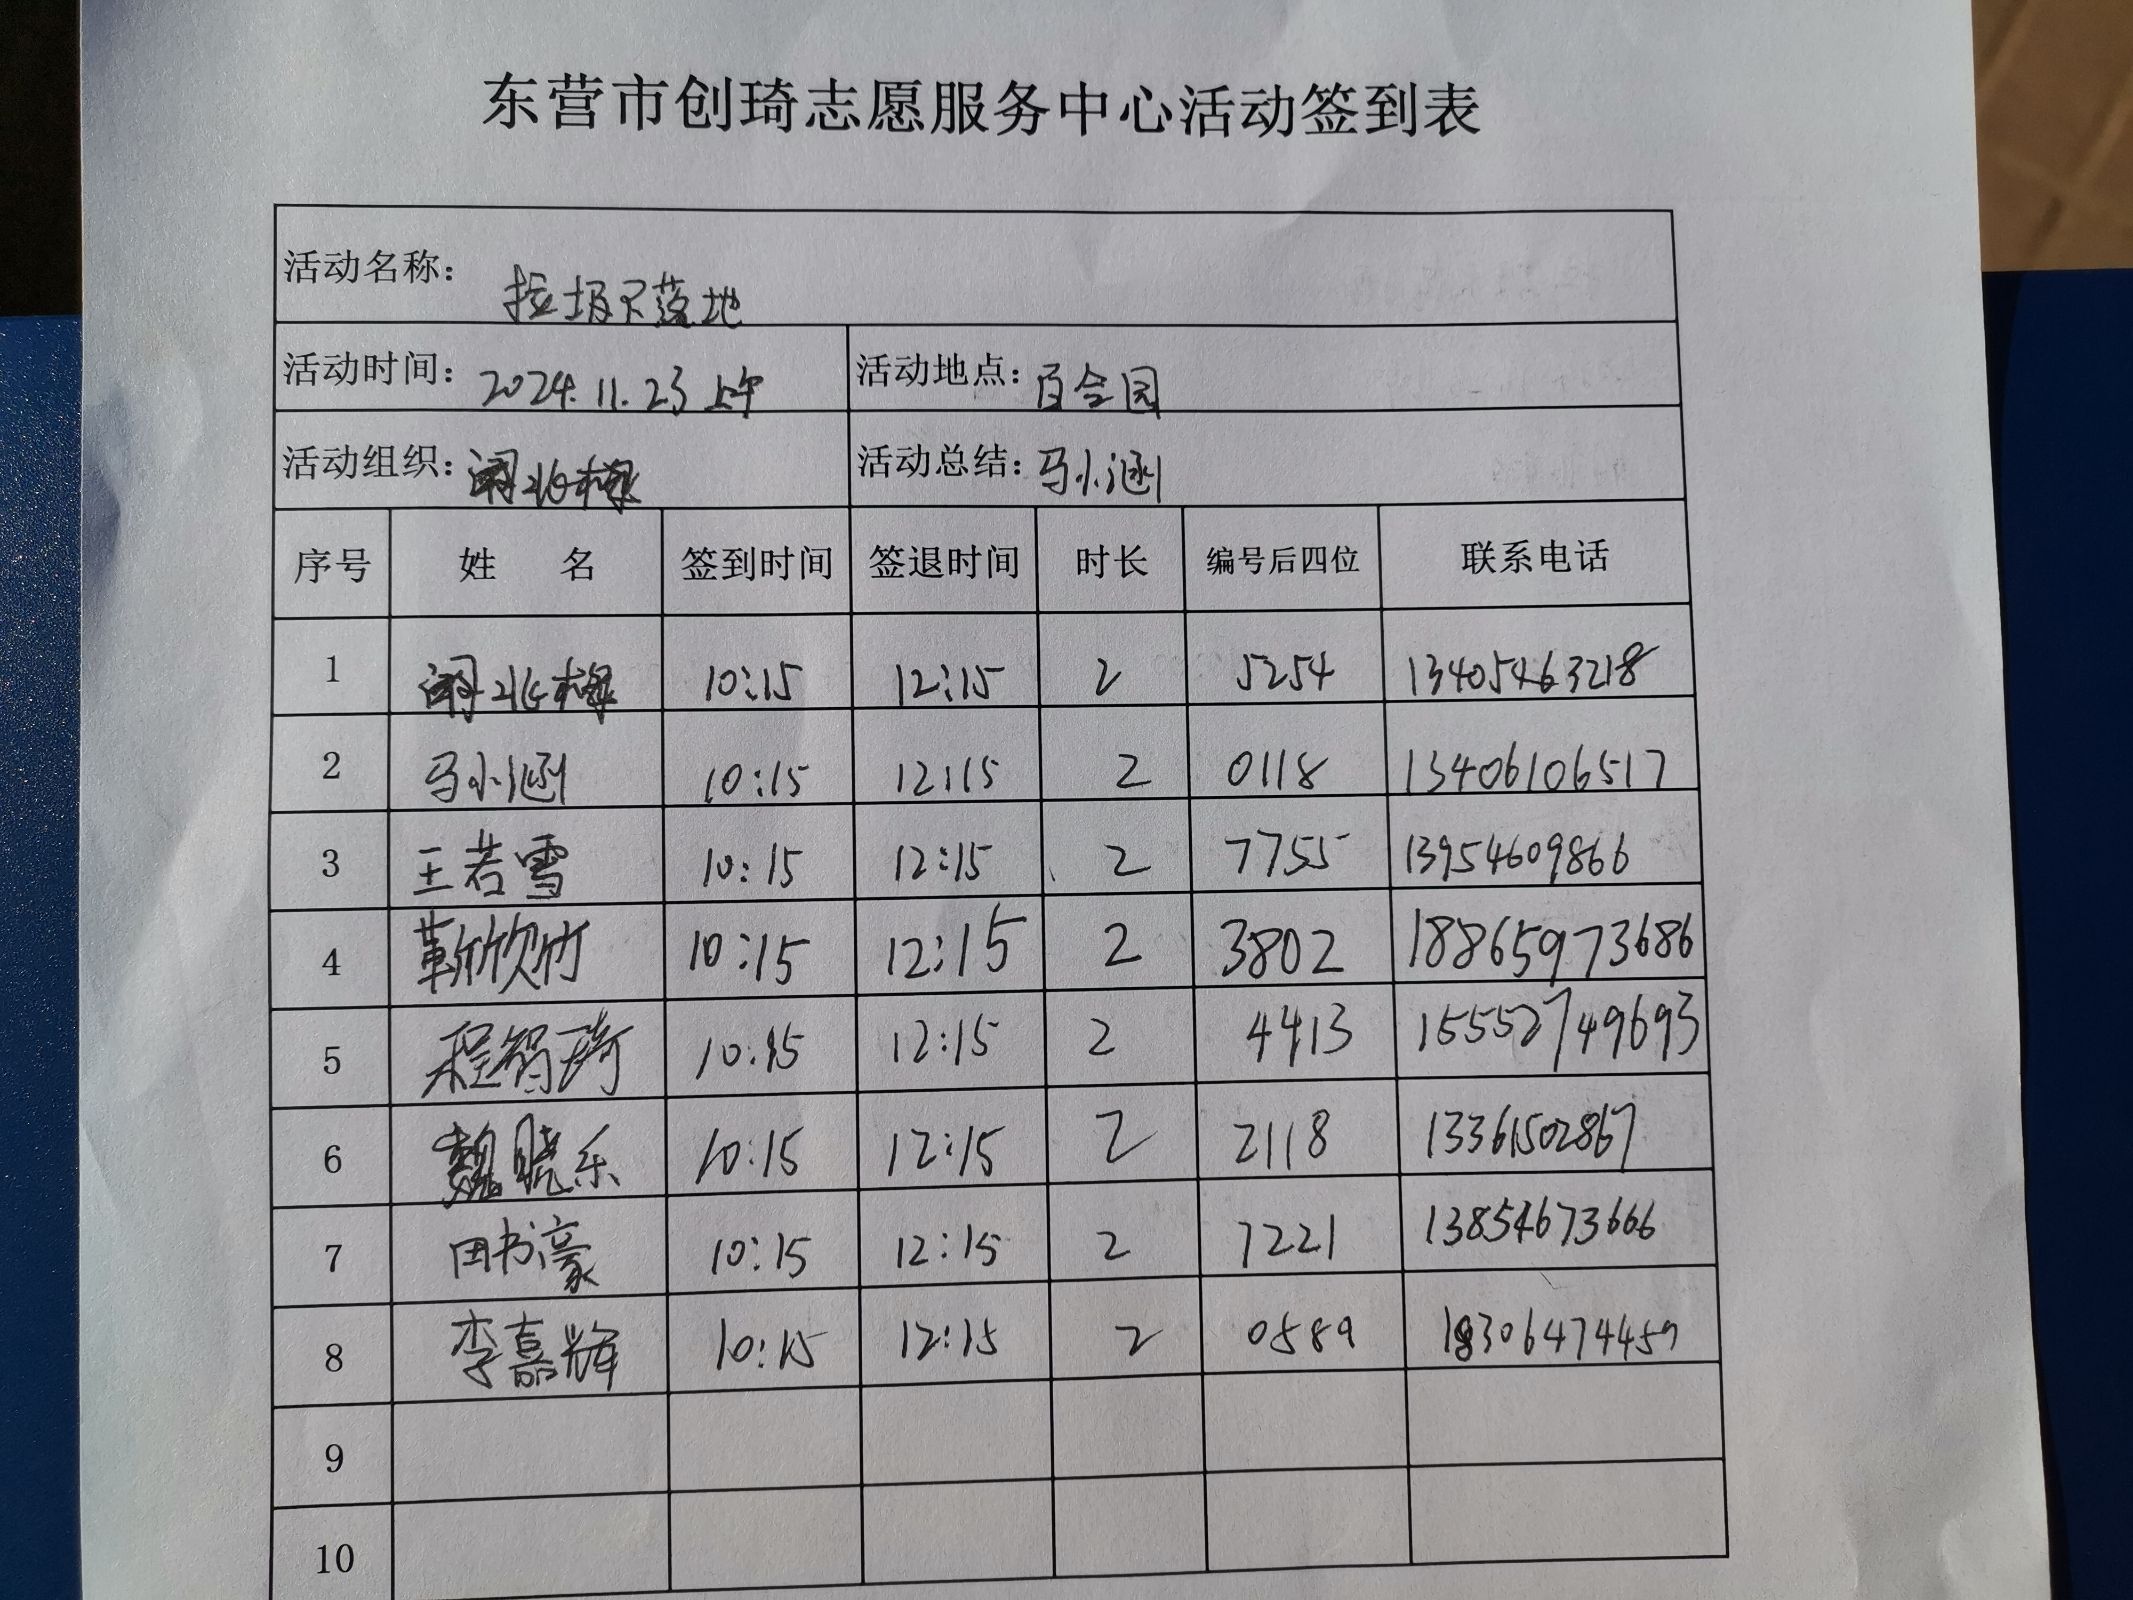 东营市创琦志愿服务中心活动签到表
活动名称： 垃圾不落地
活动时间：2024.11.23 上午 活动地点：百合园
活动组织： 活动总结：马小涵
序号 姓 名 签到时间 签退时间 时长 编号后四位 联系电话
1 10:15 12:15 2 5254 13405463218
2 马小涵 10:15 12:15 2 0118 13406106517
3 王若雪 10:15 12:15 2 7755 13954609866
4 靳欣竹 10:15 12:15 2 3802 18865973686
5 程智琦 10:15 12:15 2 4413 15552749693
6 魏晓乐 10:15 12:15 2 2118 13361502867
7 田书豪 10:15 12:15 2 7221 13854673666
8 李嘉辉 10:15 12:15 2 0589 18306474459
9
10